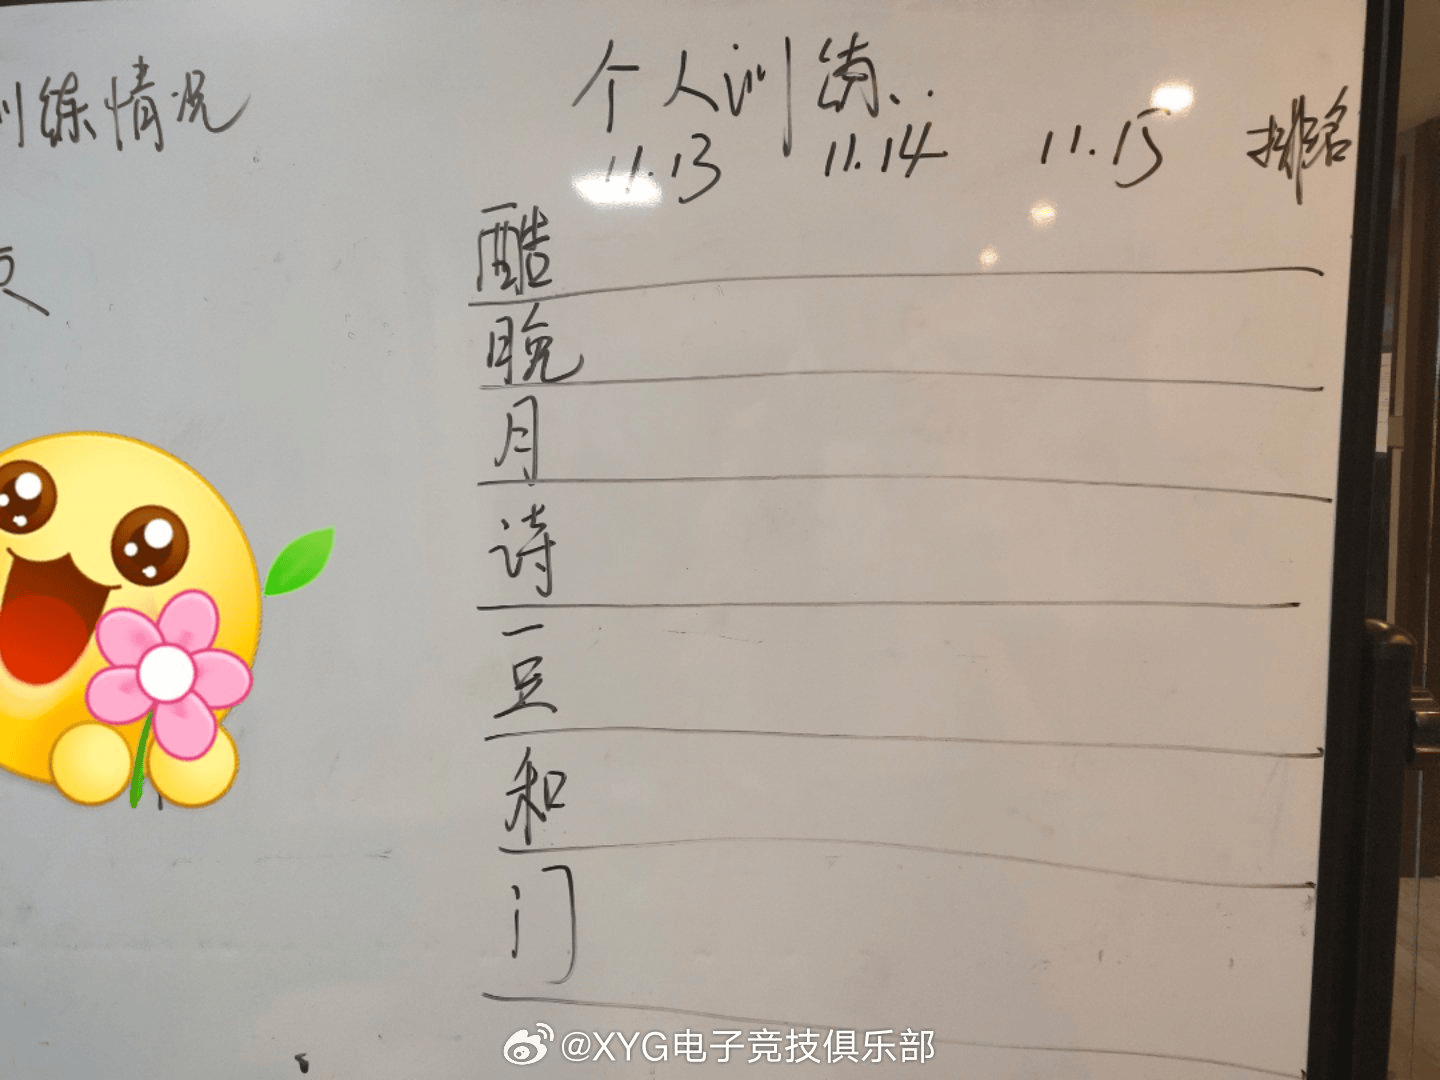 训练情况
个人训练..
11.13 11.14 11.15 排名
酷
晚
月
诗
一
豆
和
门
@XYG电子竞技俱乐部